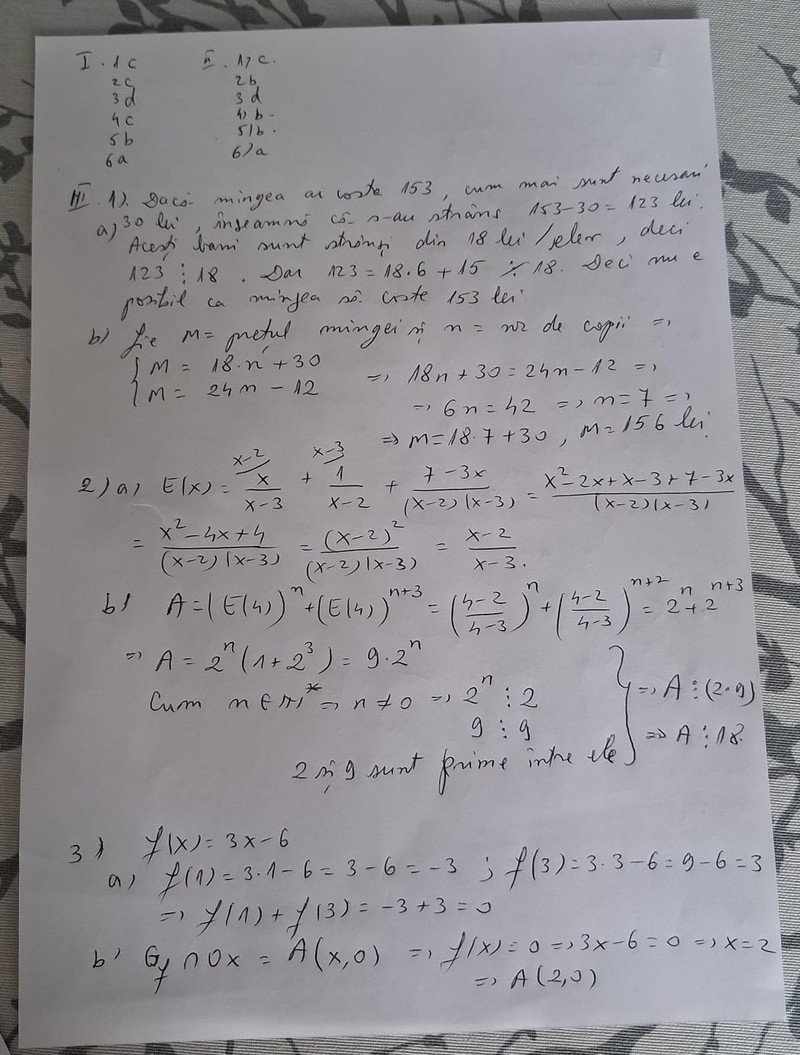 I. 1 c II. 1) c.
2c 2 b
3 d 3 d
4c 4) b.
5 b 5) b.
6a 6) a
III. 1). Dacă mingea ar coste 153, cum mai sunt necesari
a) 30 lei, înseamnă că s-au strâns 153-30 = 123 lei.
Acești bani sunt strânși din 18 lei/elev, deci
123 ⋮ 18. Dar 123 = 18·6 + 15 ⋮̸ 18. Deci nu e
posibil ca mingea să coste 153 lei.
b) Fie M = prețul mingei și n = nr de copii =>
{ M = 18·n + 30
{ M = 24n - 12 => 18n + 30 = 24n - 12 =>
=> 6n = 42 => n = 7 =>
=> M = 18·7 + 30, M = 156 lei.
2) a) E(x) = ^{x-2)} x/(x-3) + ^{x-3)} 1/(x-2) + (7-3x)/((x-2)(x-3)) = (x²-2x+x-3+7-3x)/((x-2)(x-3))
= (x²-4x+4)/((x-2)(x-3)) = (x-2)²/((x-2)(x-3)) = (x-2)/(x-3).
b) A = (E(4))^n + (E(4))^{n+3} = ((4-2)/(4-3))^n + ((4-2)/(4-3))^{n+2} = 2^n + 2^{n+3}
=> A = 2^n (1+2³) = 9·2^n
Cum n ∈ N* => n ≠ 0 => 2^n ⋮ 2 } => A ⋮ (2·9)
9 ⋮ 9 => A ⋮ 18.
2 și 9 sunt prime între ele
3) f(x) = 3x-6
a) f(1) = 3·1-6 = 3-6 = -3 ; f(3) = 3·3-6 = 9-6 = 3
=> f(1) + f(3) = -3+3 = 0
b) Gf ∩ Ox = A(x,0) => f(x) = 0 => 3x-6 = 0 => x = 2
=> A(2,0)